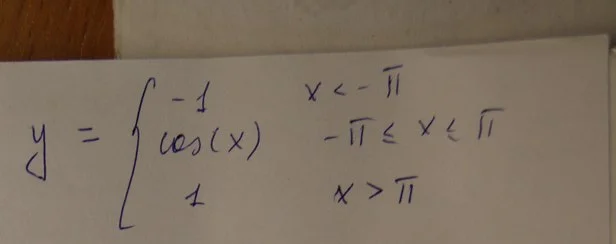 -1 x < -π
y = { cos(x) -π ≤ x ≤ π
1 x > π